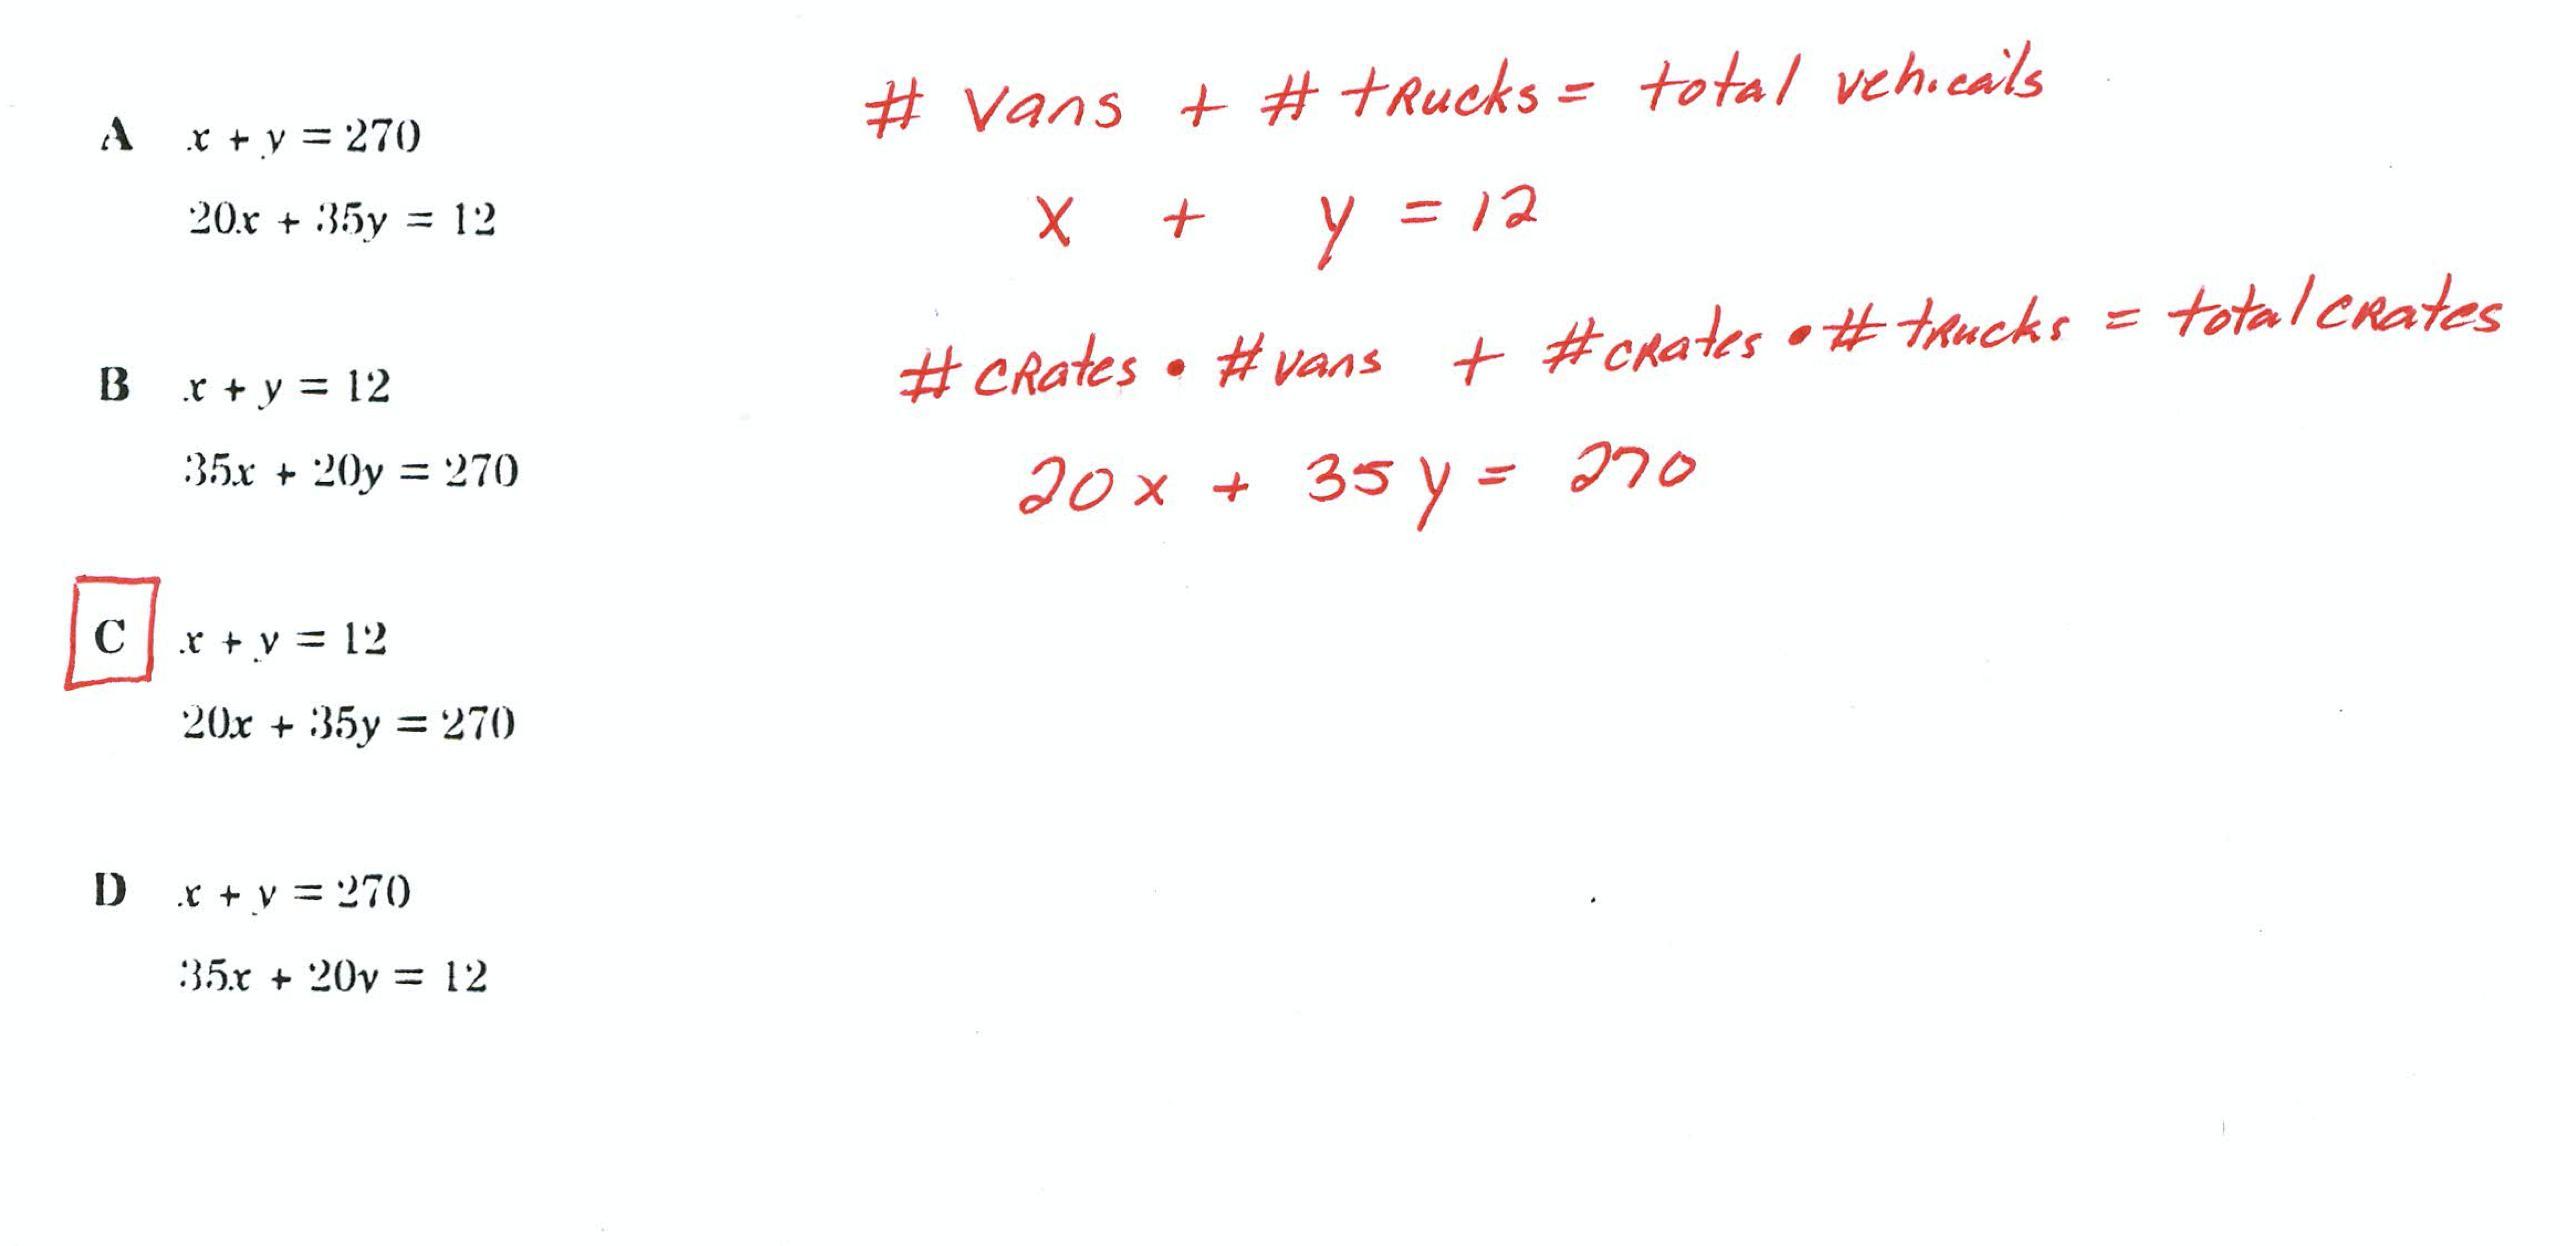 A x + y = 270
20x + 35y = 12
B x + y = 12
35x + 20y = 270
C x + y = 12
20x + 35y = 270
D x + y = 270
35x + 20y = 12
# vans + # trucks = total vehicals
x + y = 12
# crates • # vans + # crates • # trucks = total crates
20x + 35y = 270